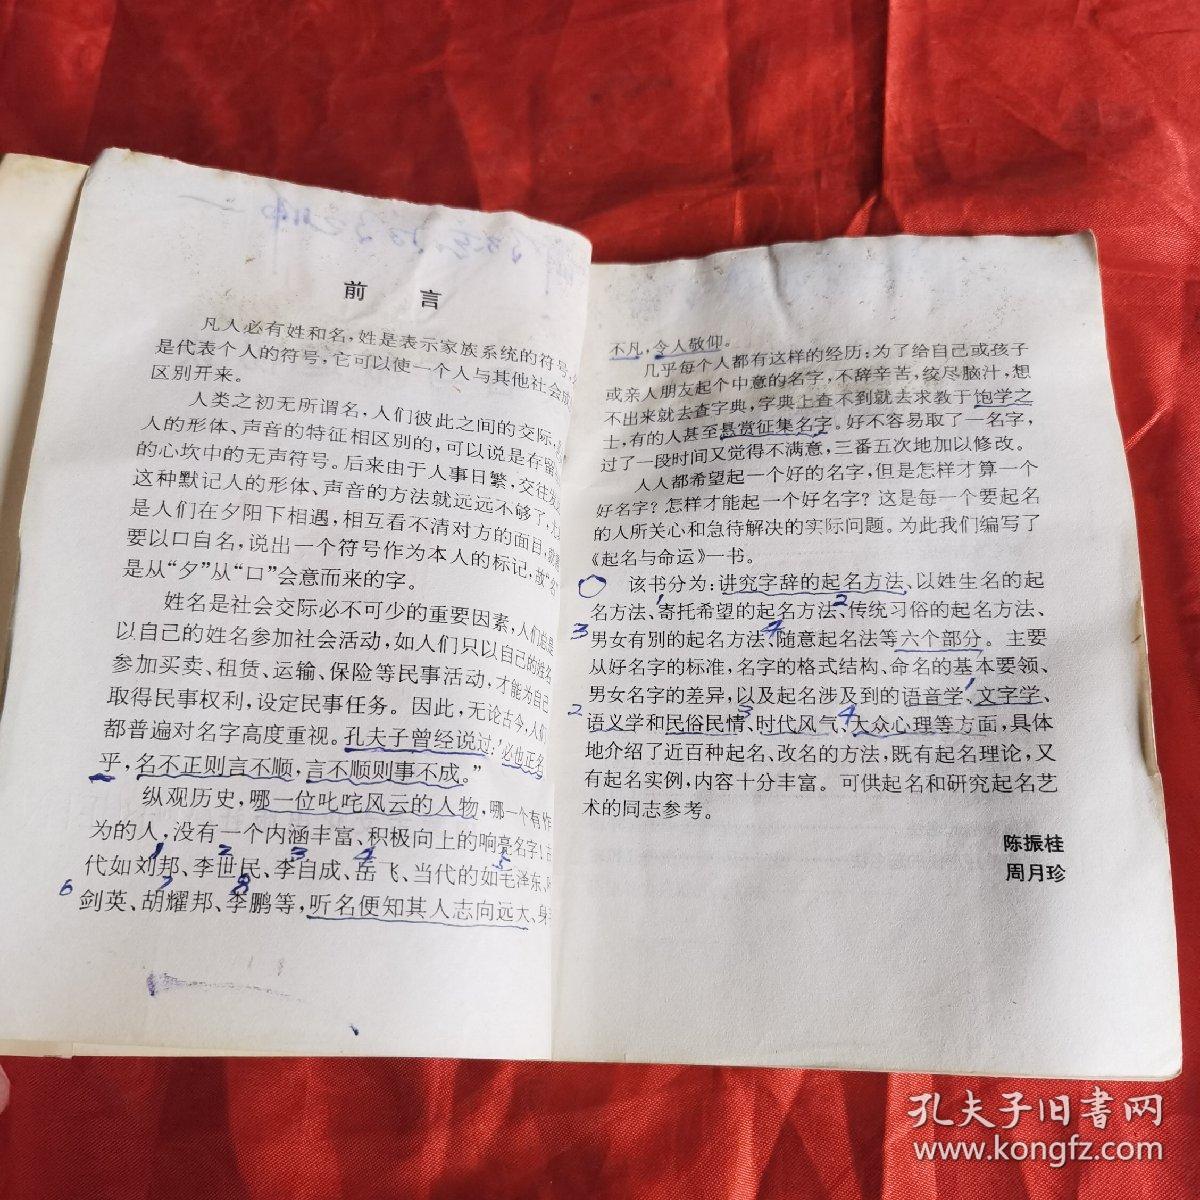 前 言
凡人必有姓和名，姓是表示家族系统的符号，
是代表个人的符号，它可以使一个人与其他社会
区别开来。
人类之初无所谓名，人们彼此之间的交际，
人的形体、声音的特征相区别的，可以说是存留
的心坎中的无声符号。后来由于人事日繁，交往
这种默记人的形体、声音的方法就远远不够了，
是人们在夕阳下相遇，相互看不清对方的面目，
要以口自名，说出一个符号作为本人的标记，故“名”
是从“夕”从“口”会意而来的字。
姓名是社会交际必不可少的重要因素，人们总是
以自己的姓名参加社会活动，如人们只以自己的姓名
参加买卖、租赁、运输、保险等民事活动，才能为自己
取得民事权利，设定民事任务。因此，无论古今，人们
都普遍对名字高度重视。孔夫子曾经说过，‘必也正名
乎，名不正则言不顺，言不顺则事不成。”
纵观历史，哪一位叱咤风云的人物，哪一个有作
为的人，没有一个内涵丰富、积极向上的响亮名字！古
代如刘邦、李世民、李自成、岳飞、当代的如毛泽东、
剑英、胡耀邦、李鹏等，听名便知其人志向远大、身
1 2 3 4 5
6 7 8
不凡，令人敬仰。
几乎每个人都有这样的经历：为了给自己或孩子
或亲人朋友起个中意的名字，不辞辛苦，绞尽脑汁，想
不出来就去查字典，字典上查不到就去求教于饱学之
士，有的人甚至悬赏征集名字。好不容易取了一名字，
过了一段时间又觉得不满意，三番五次地加以修改。
人人都希望起一个好的名字，但是怎样才算一个
好名字？怎样才能起一个好名字？这是每一个要起名
的人所关心和急待解决的实际问题。为此我们编写了
《起名与命运》一书。
该书分为：讲究字辞的起名方法、以姓生名的起
名方法、寄托希望的起名方法、传统习俗的起名方法、
男女有别的起名方法、随意起名法等六个部分。主要
从好名字的标准，名字的格式结构、命名的基本要领、
男女名字的差异，以及起名涉及到的语音学、文字学、
语义学和民俗民情、时代风气、大众心理等方面，具体
地介绍了近百种起名、改名的方法，既有起名理论，又
有起名实例，内容十分丰富。可供起名和研究起名艺
术的同志参考。
1 2
3 4
1
2 3 4
陈振桂
周月珍
孔夫子旧书网
www.kongfz.com